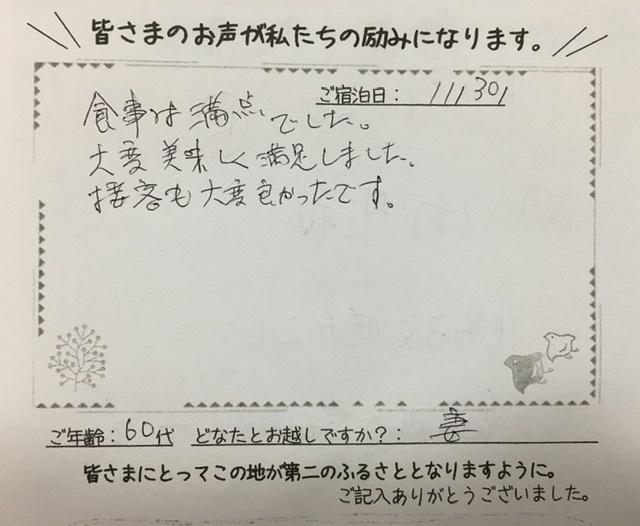 皆さまのお声が私たちの励みになります。
ご宿泊日: 11/30
食事は満点でした。
大変美味しく満足しました。
接客も大変良かったです。
ご年齢: 60代 どなたとお越しですか?: 妻
皆さまにとってこの地が第二のふるさととなりますように。
ご記入ありがとうございました。